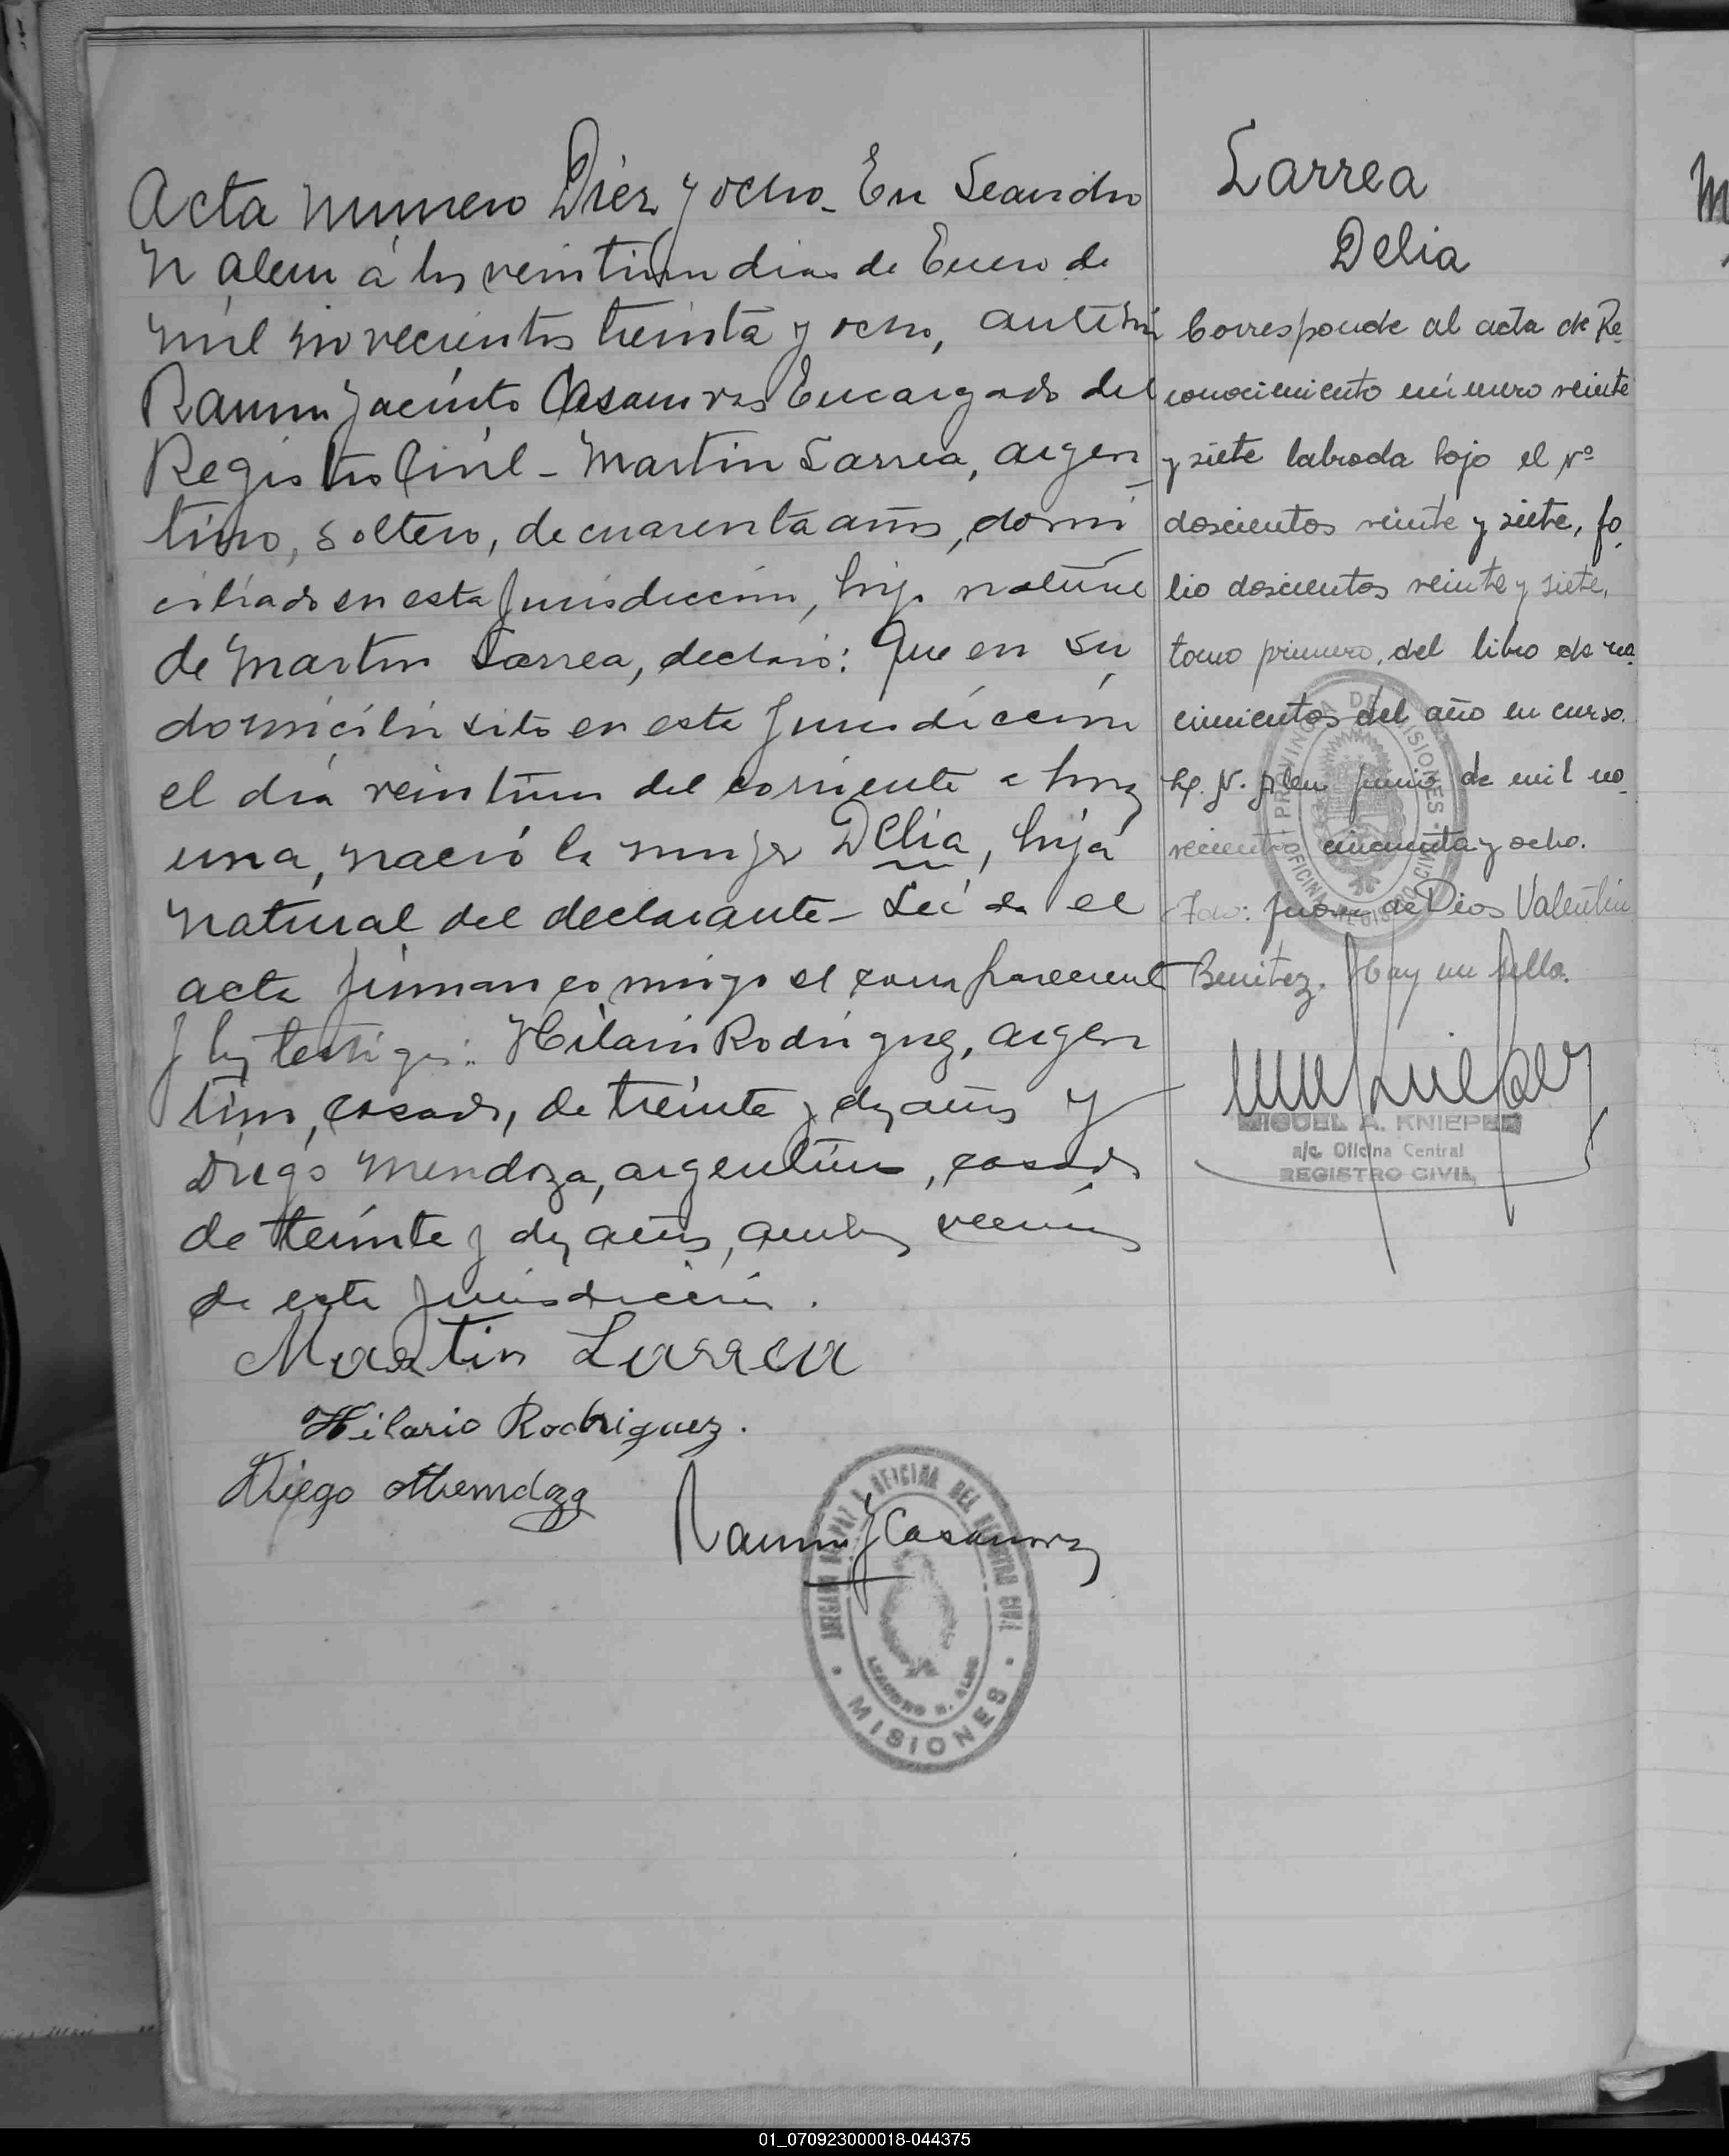 Acta numero Diez y ocho_ En Leandro
N Alem á los veintiun dias de Enero de
mil novecientos treinta y ocho, ante mi
Ramon Jacinto Casanovas Encargado del
Registro Civil - Martin Larrea, argen
tino, soltero, de cuarenta años, domi
ciliado en esta Jurisdiccion, hijo natural
de Martin Larrea, declaró: Que en su
domicilio sito en esta Jurisdiccion
el día veintiun del corriente a hora
una, nació la mujer Delia, hija
natural del declarante - Leida el
acta firman conmigo el compareciente
y los testigos: Hilario Rodriguez, argen
tino, casado, de treinta y dos años y
Diego Mendoza, argentino, casado
de treinta y dos años, ambos vecinos
de esta Jurisdiccion.
Martin Larrea
Hilario Rodriguez.
Diego Mendoza
Ramon J Casanovas
JUZGADO DE PAZ Y OFICINA DEL REGISTRO CIVIL
LEANDRO N. ALEM
MISIONES
Larrea
Delia
Corresponde al acta de Re
conocimiento número veinte
y siete labrada bajo el Nº
doscientos veinte y siete, fo
lio doscientos veinte y siete,
tomo primero, del libro de na
cimientos del año en curso.
L. N. Alem Junio de mil no
vecientos cincuenta y ocho.
Fdo: Juan de Dios Valentin
Benitez. Hay un sello.
PROVINCIA DE MISIONES
OFICINA REGISTRO CIVIL
MIGUEL A. KNIEPER
a/c. Oficina Central
REGISTRO CIVIL
01_070923000018-044375